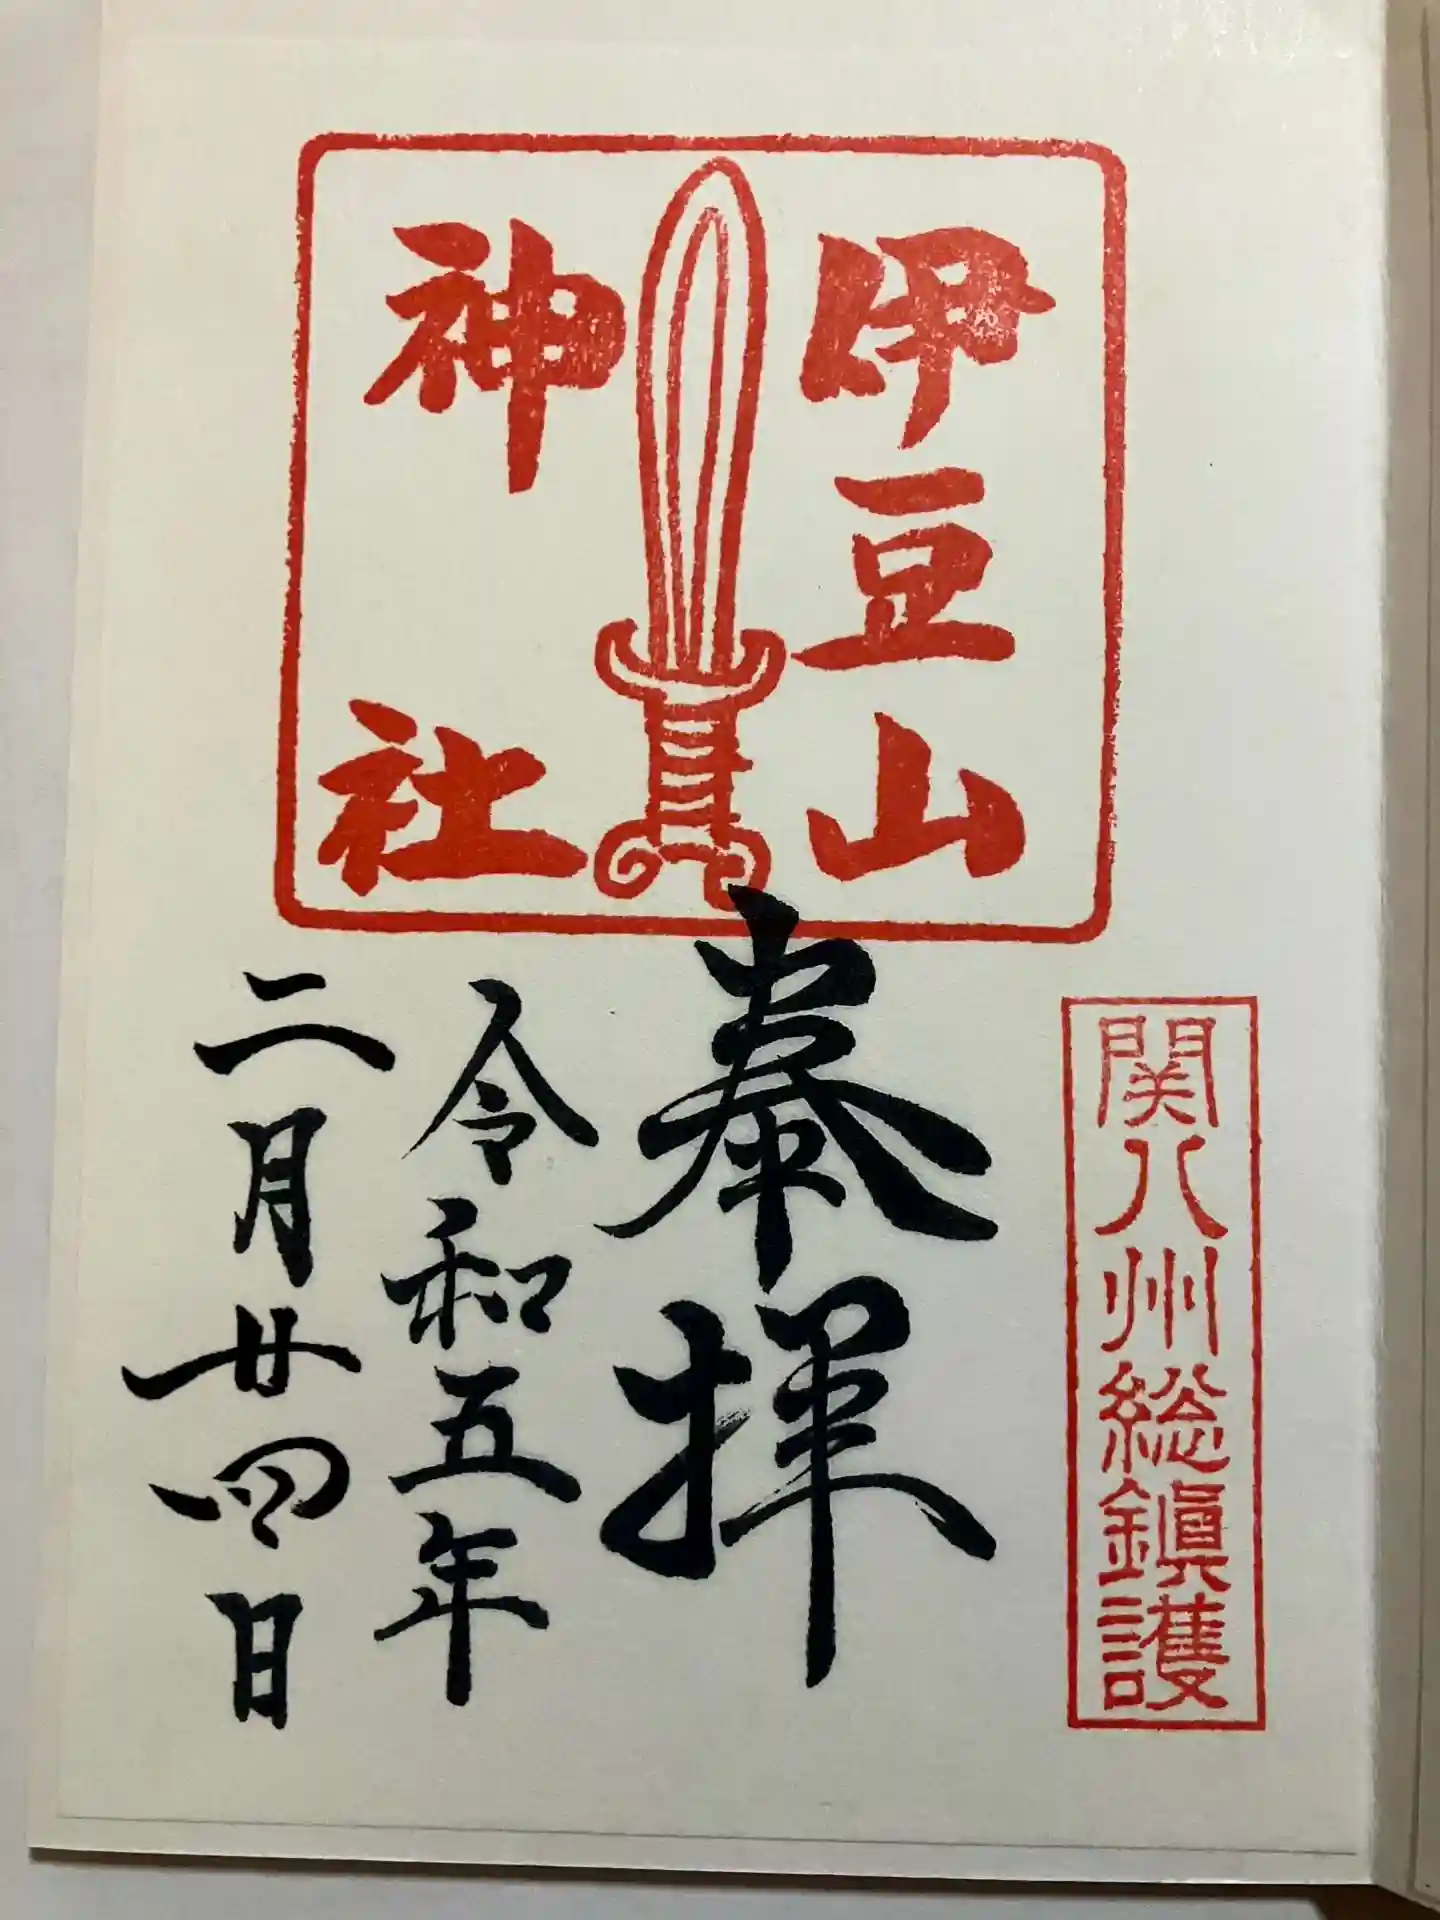 伊豆山
神社
関八州総鎭護
奉拝
令和五年
二月廿四日